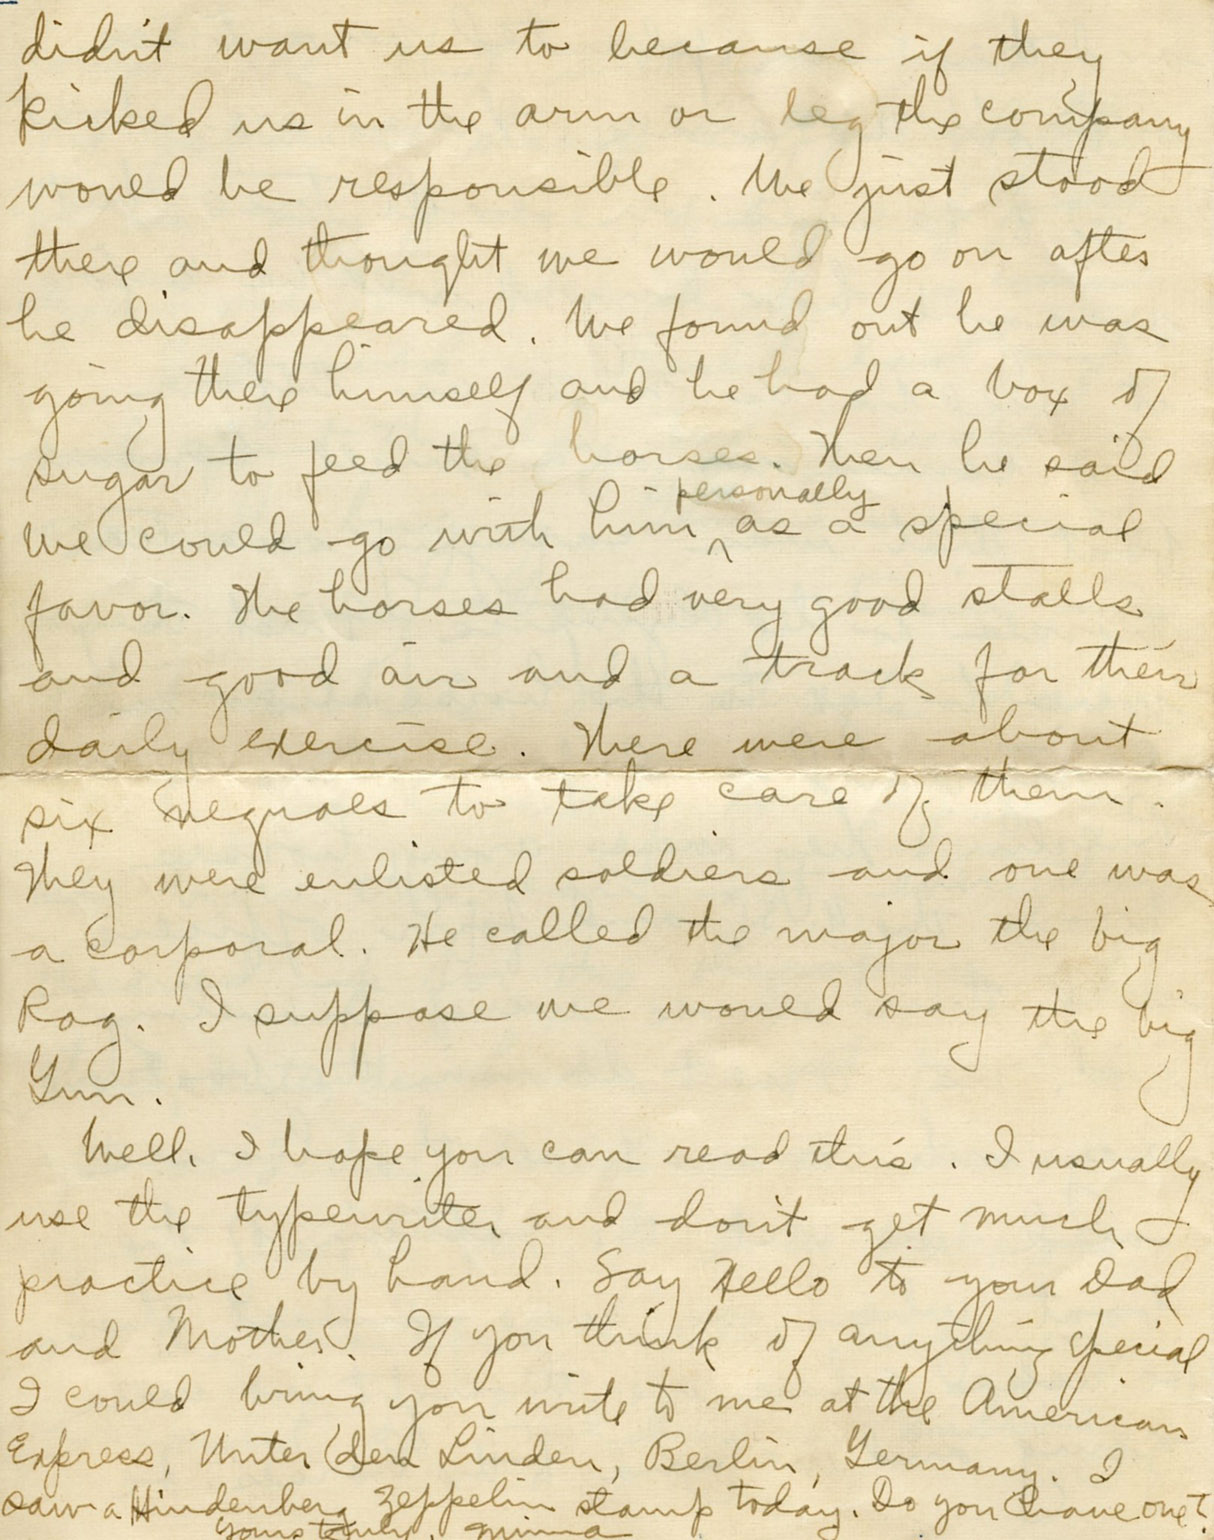 didn't want us to because if they
kicked us in the arm or leg the company
would be responsible. We just stood
there and thought we would go on after
he disappeared. We found out he was
going there himself and he had a box of
sugar to feed the horses. Then he said
personally
we could go with him ^ as a special
favor. The horses had very good stalls
and good air and a track for their
daily exercise. There were about
six negroes to take care of them.
They were enlisted soldiers and one was
a corporal. He called the major the big
Rag. I suppose we would say the big
Gun.
Well, I hope you can read this. I usually
use the typewriter and don't get much
practice by hand. Say Hello to your Dad
and Mother. If you think of anything special
I could bring you write to me at the American
Express, Unter den Linden, Berlin, Germany. I
saw a Hindenberg Zeppelin stamp today. Do you have one?
Yours truly, Minna